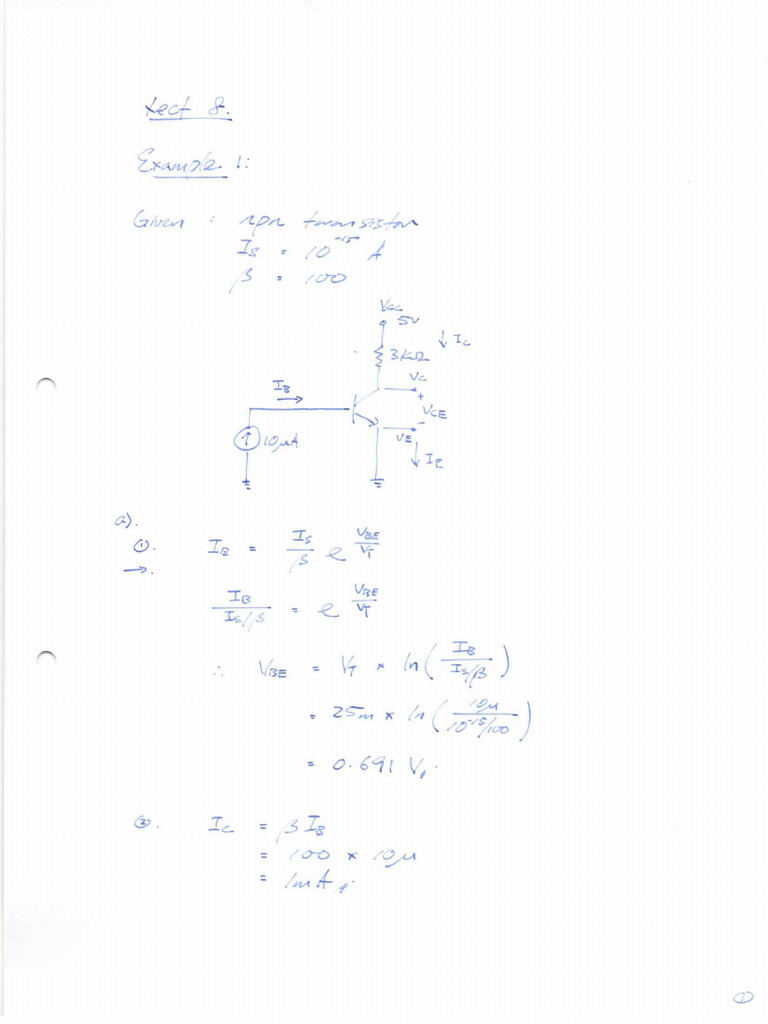 Lect 8.
Example 1:
Given : npn transistor
I_S = 10^-15 A
β = 100
VCC
5V
↓ I_C
3KΩ
VC
+
VCE
-
VE
↓ I_E
I_B
→
↑ 10μA
a).
①. I_B = I_S/β e^(V_BE/V_T)
→.
I_B/(I_S/β) = e^(V_BE/V_T)
∴ V_BE = V_T × ln(I_B/(I_S/β))
= 25m × ln(10μ/(10^-15/100))
= 0.691 V.
②. I_C = βI_B
= 100 × 10μ
= 1mA.
①